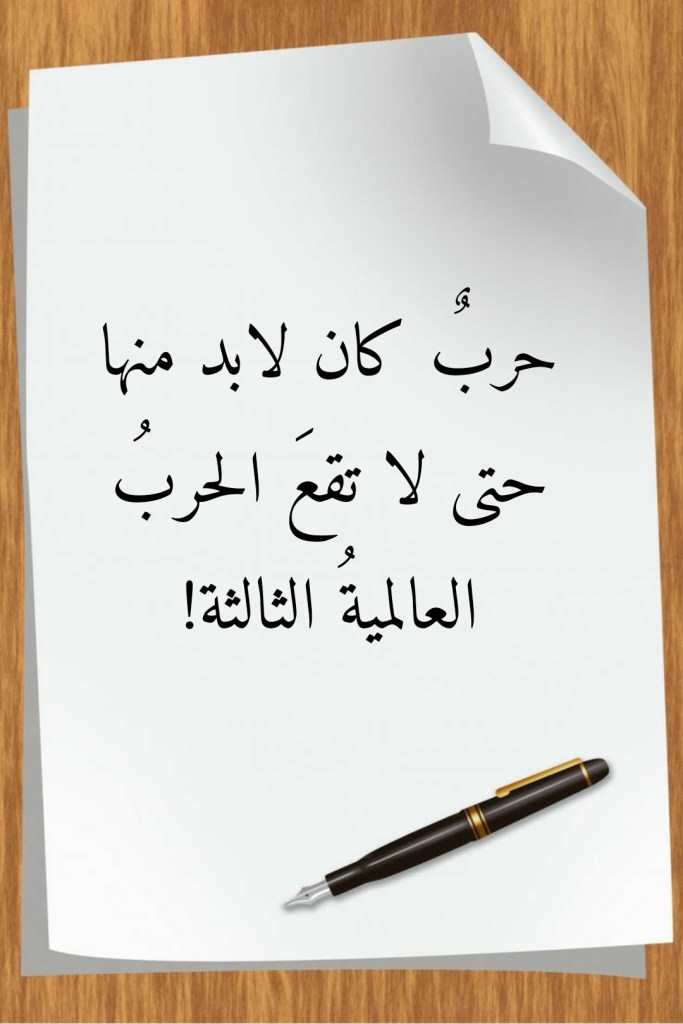 حربٌ كان لابد منها
حتى لا تقعَ الحربُ
العالميةُ الثالثة!